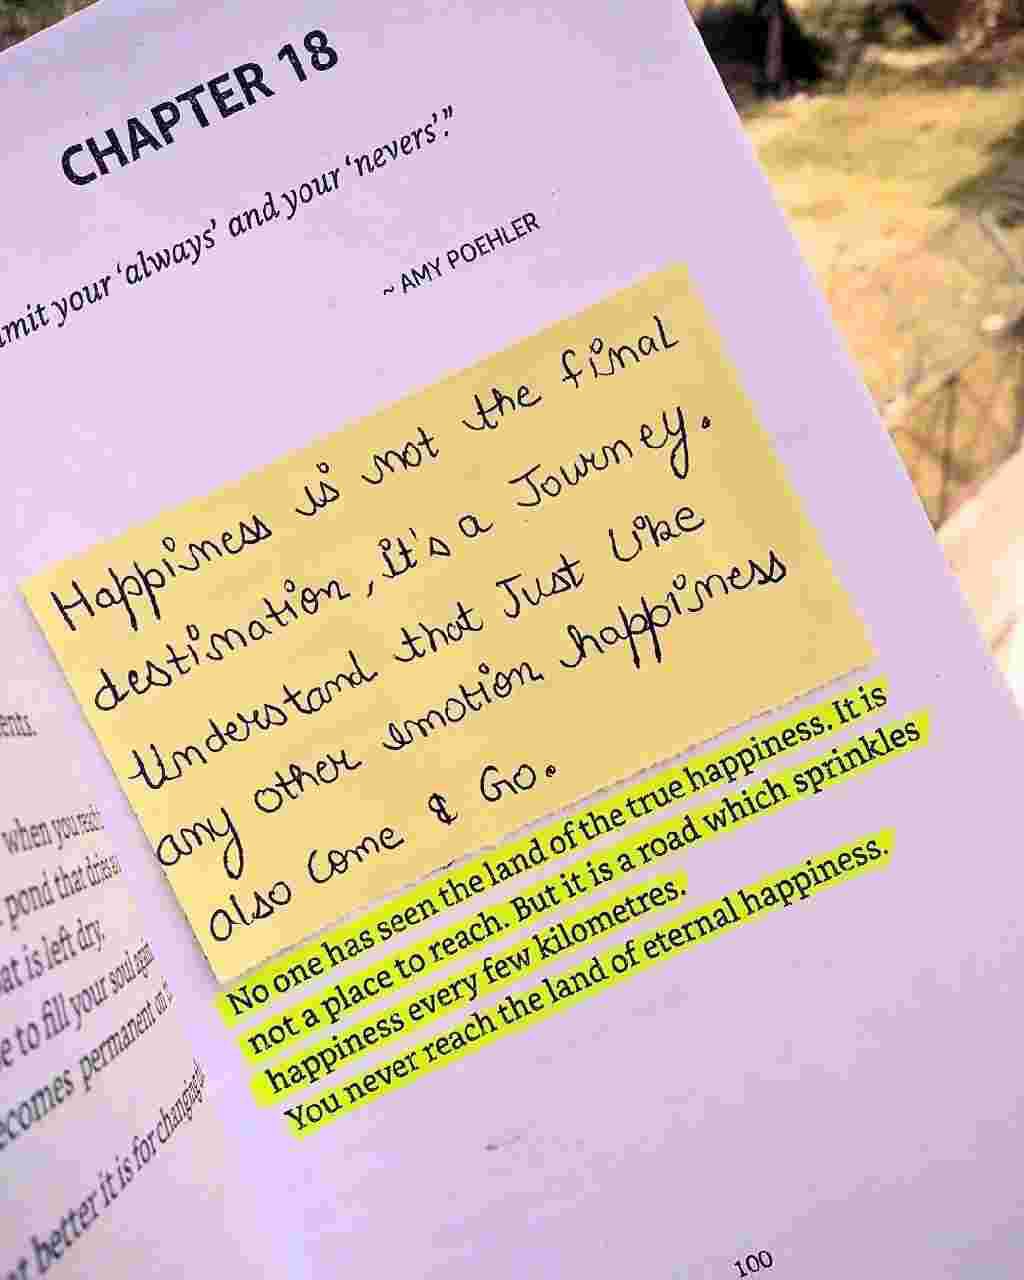 CHAPTER 18
your 'always' and your 'nevers'."
~ AMY POEHLER
Happiness is not the final
destination, it's a Journey.
Understand that Just Like
any other emotion happiness
also Come & Go.
No one has seen the land of the true happiness. It is
not a place to reach. But it is a road which sprinkles
happiness every few kilometres.
You never reach the land of eternal happiness.
100
when you reach
pond that dries
is left dry.
to fill your soul again
permanent
better it is for changing